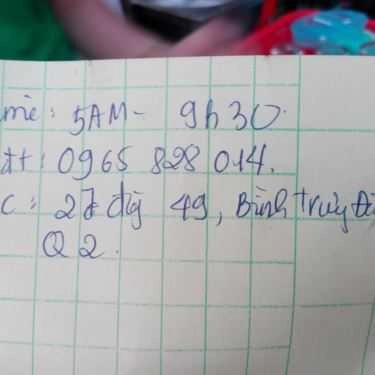 me: 5AM - 9h30.
đt: 0965 828 014.
C: 27 đg 49, Bình trưng Đ
Q2.